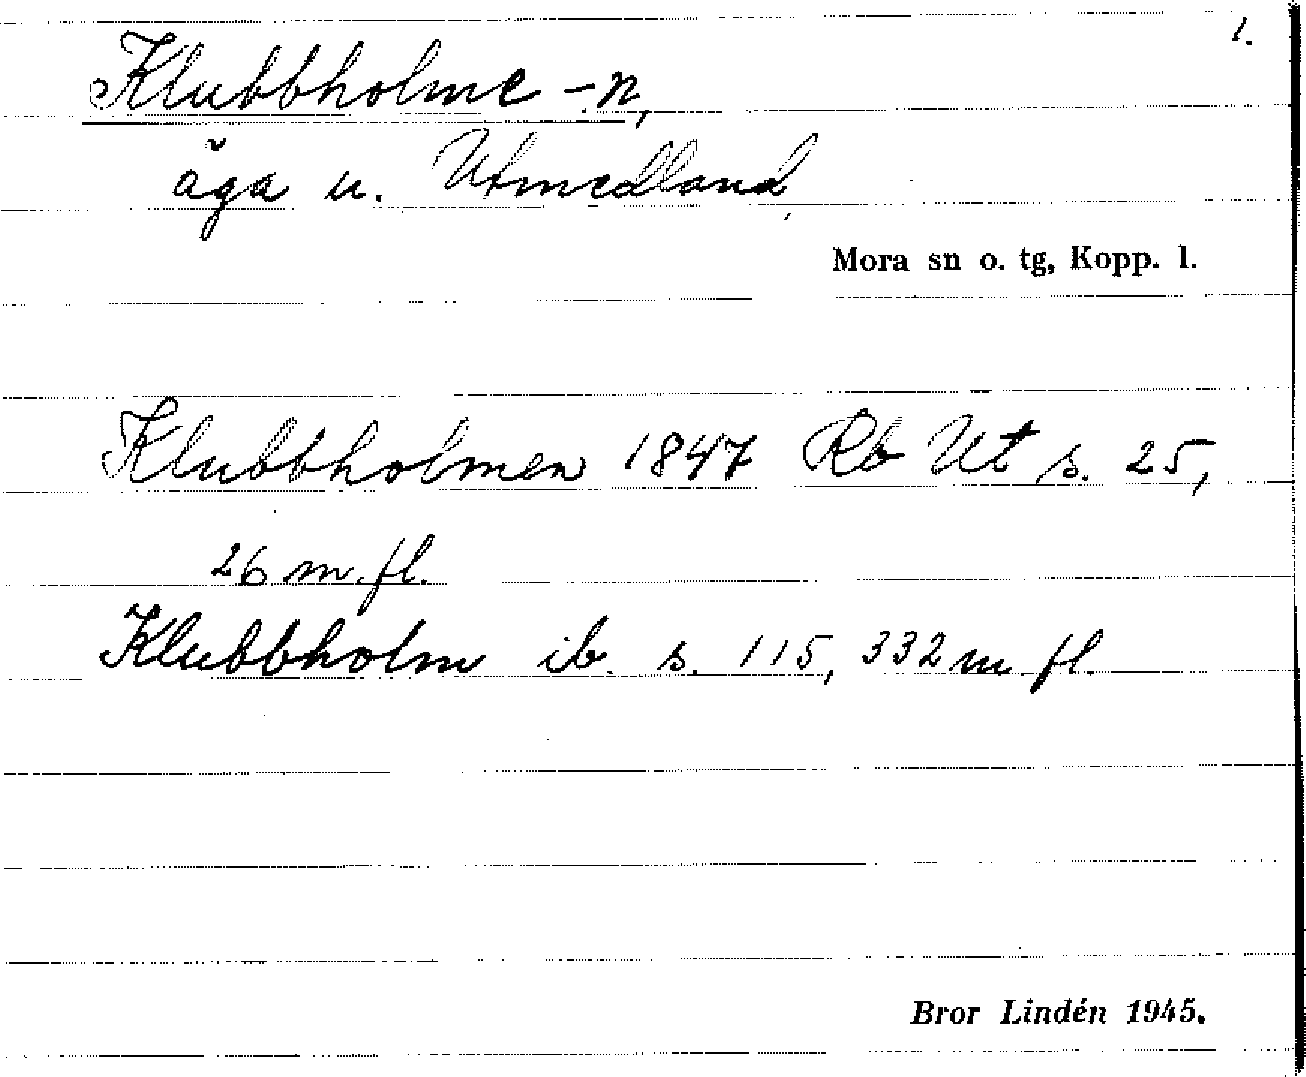 1.
Klubbholme -n,
äga u. Utmedland,
Mora sn o. tg, Kopp. l.
Klubbholmen 1847 Rb Ut s. 25,
26 m. fl.
Klubbholm ib. s. 115, 332 m. fl.
Bror Lindén 1945.